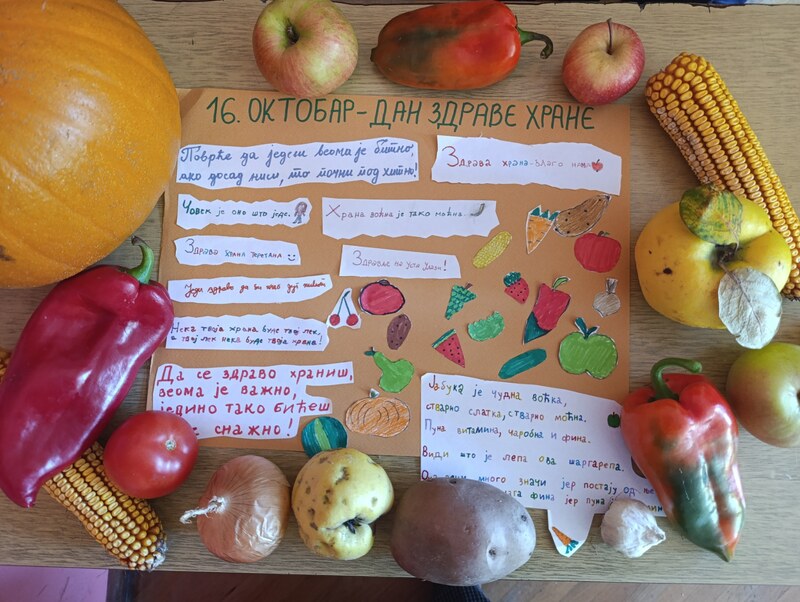 16. ОКТОБАР-ДАН ЗДРАВЕ ХРАНЕ
Поврће да једеш веома је битно,
ако досад ниси, то почни под хитно!
Здрава храна-благо
Човек је оно што једе.
Храна воћна је тако моћна.
Здрава храна
Здравље на уста улази!
Једи здраво да би
Нека твоја храна буде твој лек,
а твој лек нека буде твоја храна!
Да се здраво храниш,
веома је важно,
једино тако бићеш
снажно!
Јабука је чудна воћка,
стварно слатка, стварно моћна.
Пуна витамина, чаробна и фина.
Види што је лепа ова шаргарепа.
много значи јер постају од ње
фина јер пуна